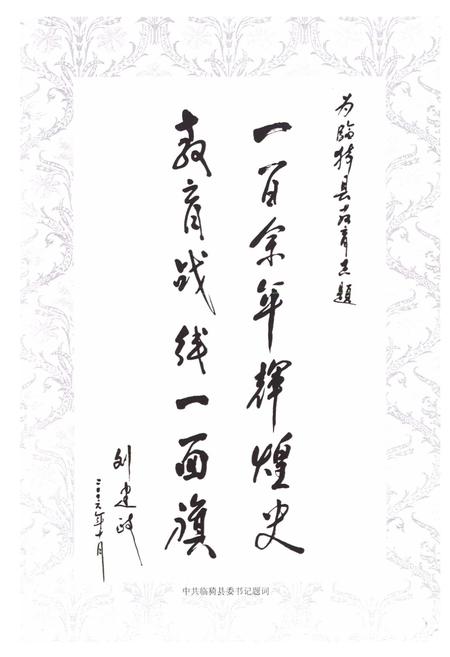 为临猗县教育志题
一百余年辉煌史
教育战线一面旗
刘建政
二〇〇六年十月
中共临猗县委书记题词